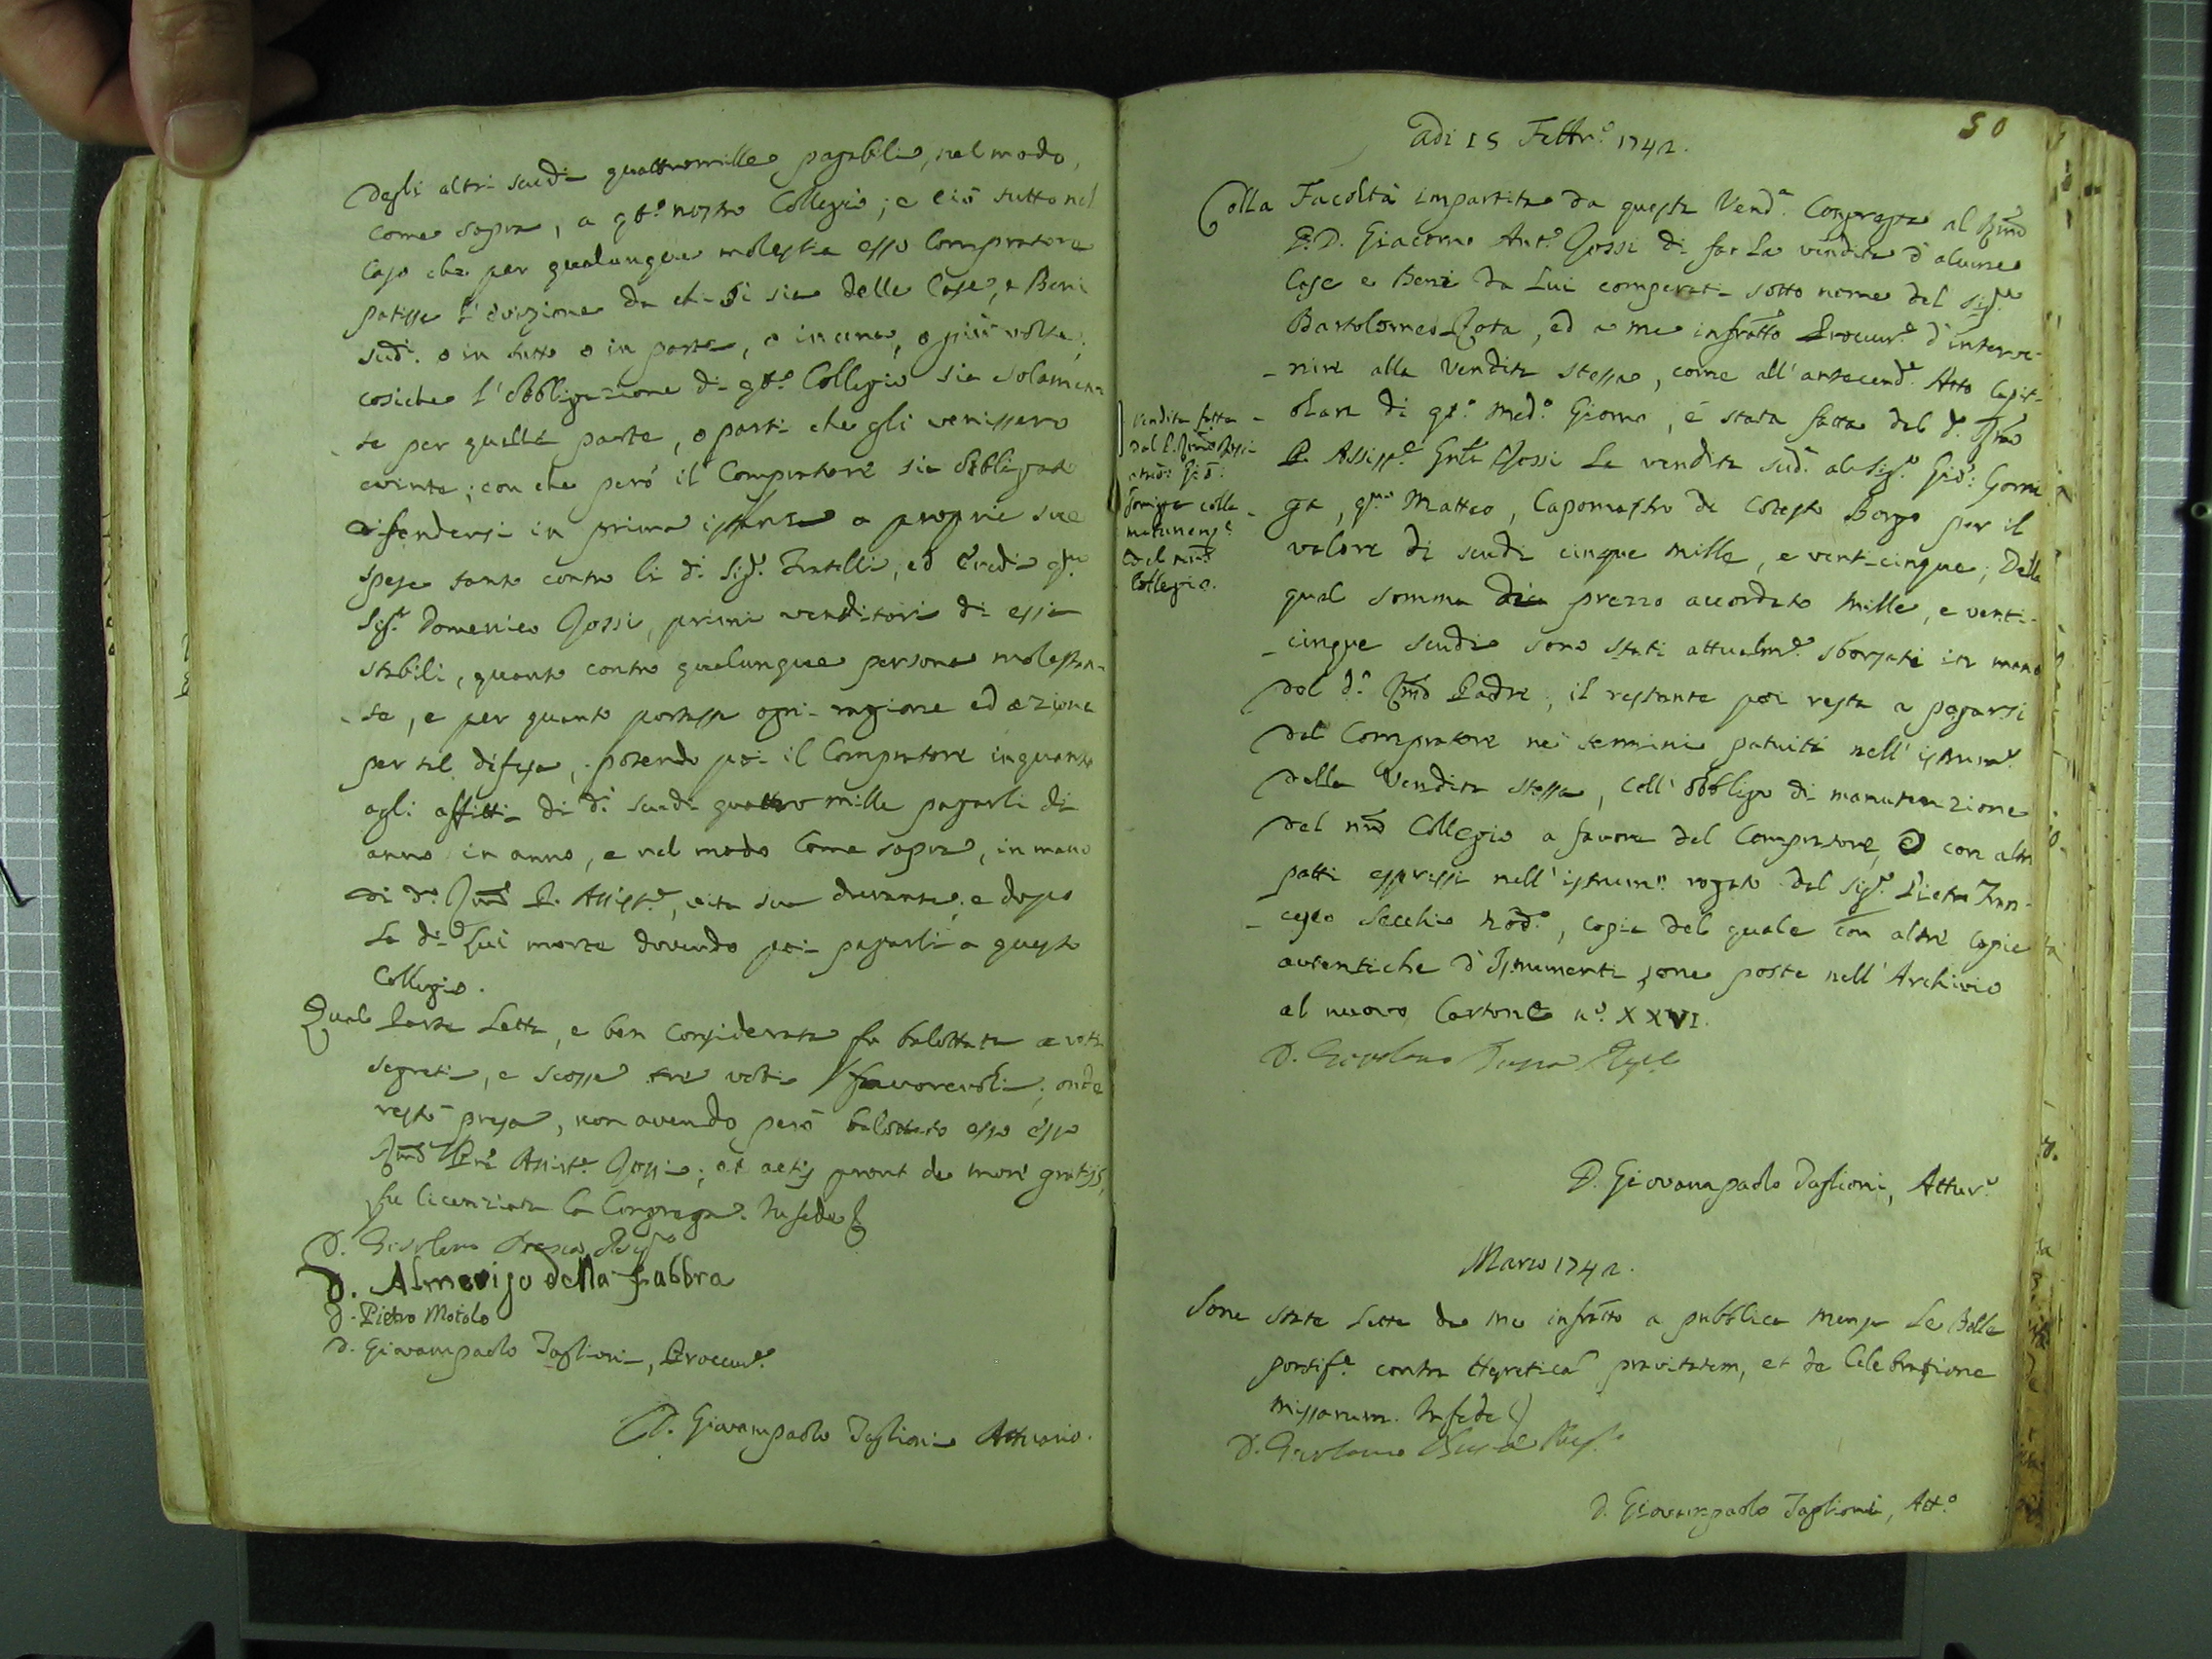 degli altri scudi quattromille pagabili, nel modo,
come sopra, a qto. nostro Collegio; e ciò tutto nel
caso che per qualunque molestia esso Compratore
patisse l'evizione da chi si sia delle Case, e Beni
sudi. o in tutto o in parte, o in una, o più volte;
cosiche l'obbligazione di qto. Collegio sia solamen-
te per quella parte, o parti che gli venissero
evinte; con che però il Compratore sia obbligato
difendersi in prima istanza a proprie sue
spese tanto contro li di. Sigi. Fratelli, ed Eredi qm.
Sigr. Domenico Rossi, primi venditori di essi
stabili, quanto contro qualunque persona molestan-
te, e per quanto portasse ogni ragione ed azione
per tal difesa, potendo poi il Compratore in quanto
agli affitti di di. scudi quattro mille pagarli di
anno in anno, e nel modo come sopra, in mano
di do. Rmo P. Assiste., vita sua durante, e dopo
la di Lui morte dovendo poi pagarli a questo
Collegio.
Qual Parte Letta, e ben considerata fu balottata a voti
segreti, e scosse tre voti favorevoli; onde
restò presa, non avendo però balottato esso esso
Rmo Pre Assiste. Rossi; et actis prout de more gratijs,
fu licenziata la Congrega. In fede
D. Girolamo
D. Almerigo della Fabbra
D. Pietro Motolo
D. Giovampaolo Taglioni, Procure.
D. Giovampaolo Taglioni Attuario.
50
Adi 15 Febbro. 1742.
Colla Facoltà impartita da questa Vend. Congrega al Rmo
P. D. Giacomo Anto. Rossi di far la vendita d'alcune
Case e Beni da Lui comperati sotto nome del Sigr.
Bartolomeo Rota, ed a me infratto Procure. d'interve-
-nire alla vendita stessa, come all'antecende. Atto Capit-
olare di qto. medo. Giorno, è stata fatta dal do. Rmo
P. Assiste. Gnle Rossi la vendita suda. al Sigr. Gio:
qm. Matteo, Capomastro di Cotesto Borgo per il
valore di scudi cinque mille, e venticinque; Della
qual somma prezzo accordato mille, e venti-
-cinque scudi sono stati attualme. sborsati in mano
del do. Rmo Padre; il restante poi resta a pagarsi
dal Compratore nei termini patuiti nell'istrume.
della Vendita stessa, coll'obbligo di manutenzione
del nro Collegio a favore del Compratore, e con altri
patti espressi nell'istrumo. rogato dal Sigr. Pietro Fran-
-cesco Secchi Nodo., copia del quale con altre copie
autentiche d'Istrumenti sono poste nell'Archivio
al nuovo Cartone no. XXVI.
D. Girolamo
Vendita fatta
dal P. Rmo Rossi
Gio:
colla
manutenze.
del nro
Collegio.
D. Giovampaolo Taglioni, Atturo.
Marzo 1742.
Sono state lette da me infratto a pubblica mensa le Bolle
pontife. contra Hereticã pravitatem, et de Celebratione
missarum. In fede
D. Girolamo
D. Giovampaolo Taglioni, Atto.